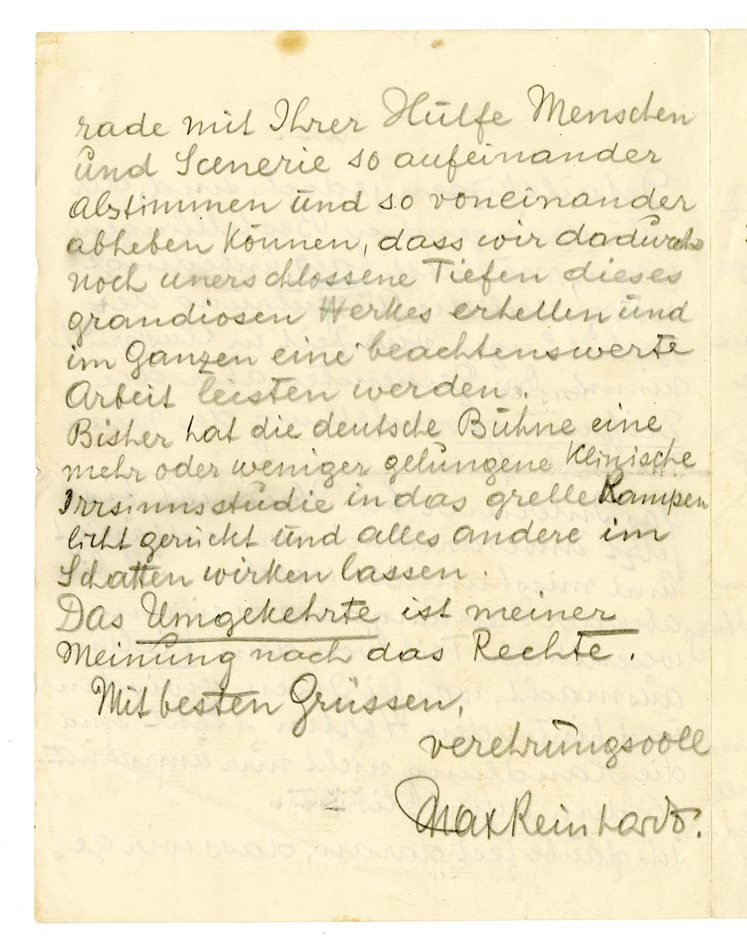 rade mit Ihrer Hülfe Menschen
und Scenerie so aufeinander
abstimmen und so voneinander
abheben können, dass wir dadurch
noch unerschlossene Tiefen dieses
grandiosen Werkes erhellen und
im Ganzen eine beachtenswerte
Arbeit leisten werden.
Bisher hat die deutsche Bühne eine
mehr oder weniger gelungene klinische
Irrsinnsstudie in das grelle Rampen
licht gerückt und alles andere im
Schatten wirken lassen.
Das Umgekehrte ist meiner
Meinung nach das Rechte.
Mit besten Grüssen,
verehrungsvoll
Max Reinhardt.